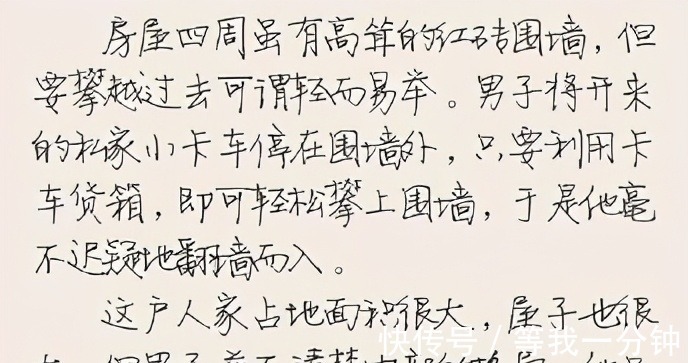 房屋四周虽有高耸的红砖围墙，但
要攀越过去可谓轻而易举。男子将开来
的私家小卡车停在围墙外，只要利用卡
车货箱，即可轻松攀上围墙，于是他毫
不迟疑地翻墙而入。
这户人家占地面积很大，屋子也很
快传号／等我一分钟